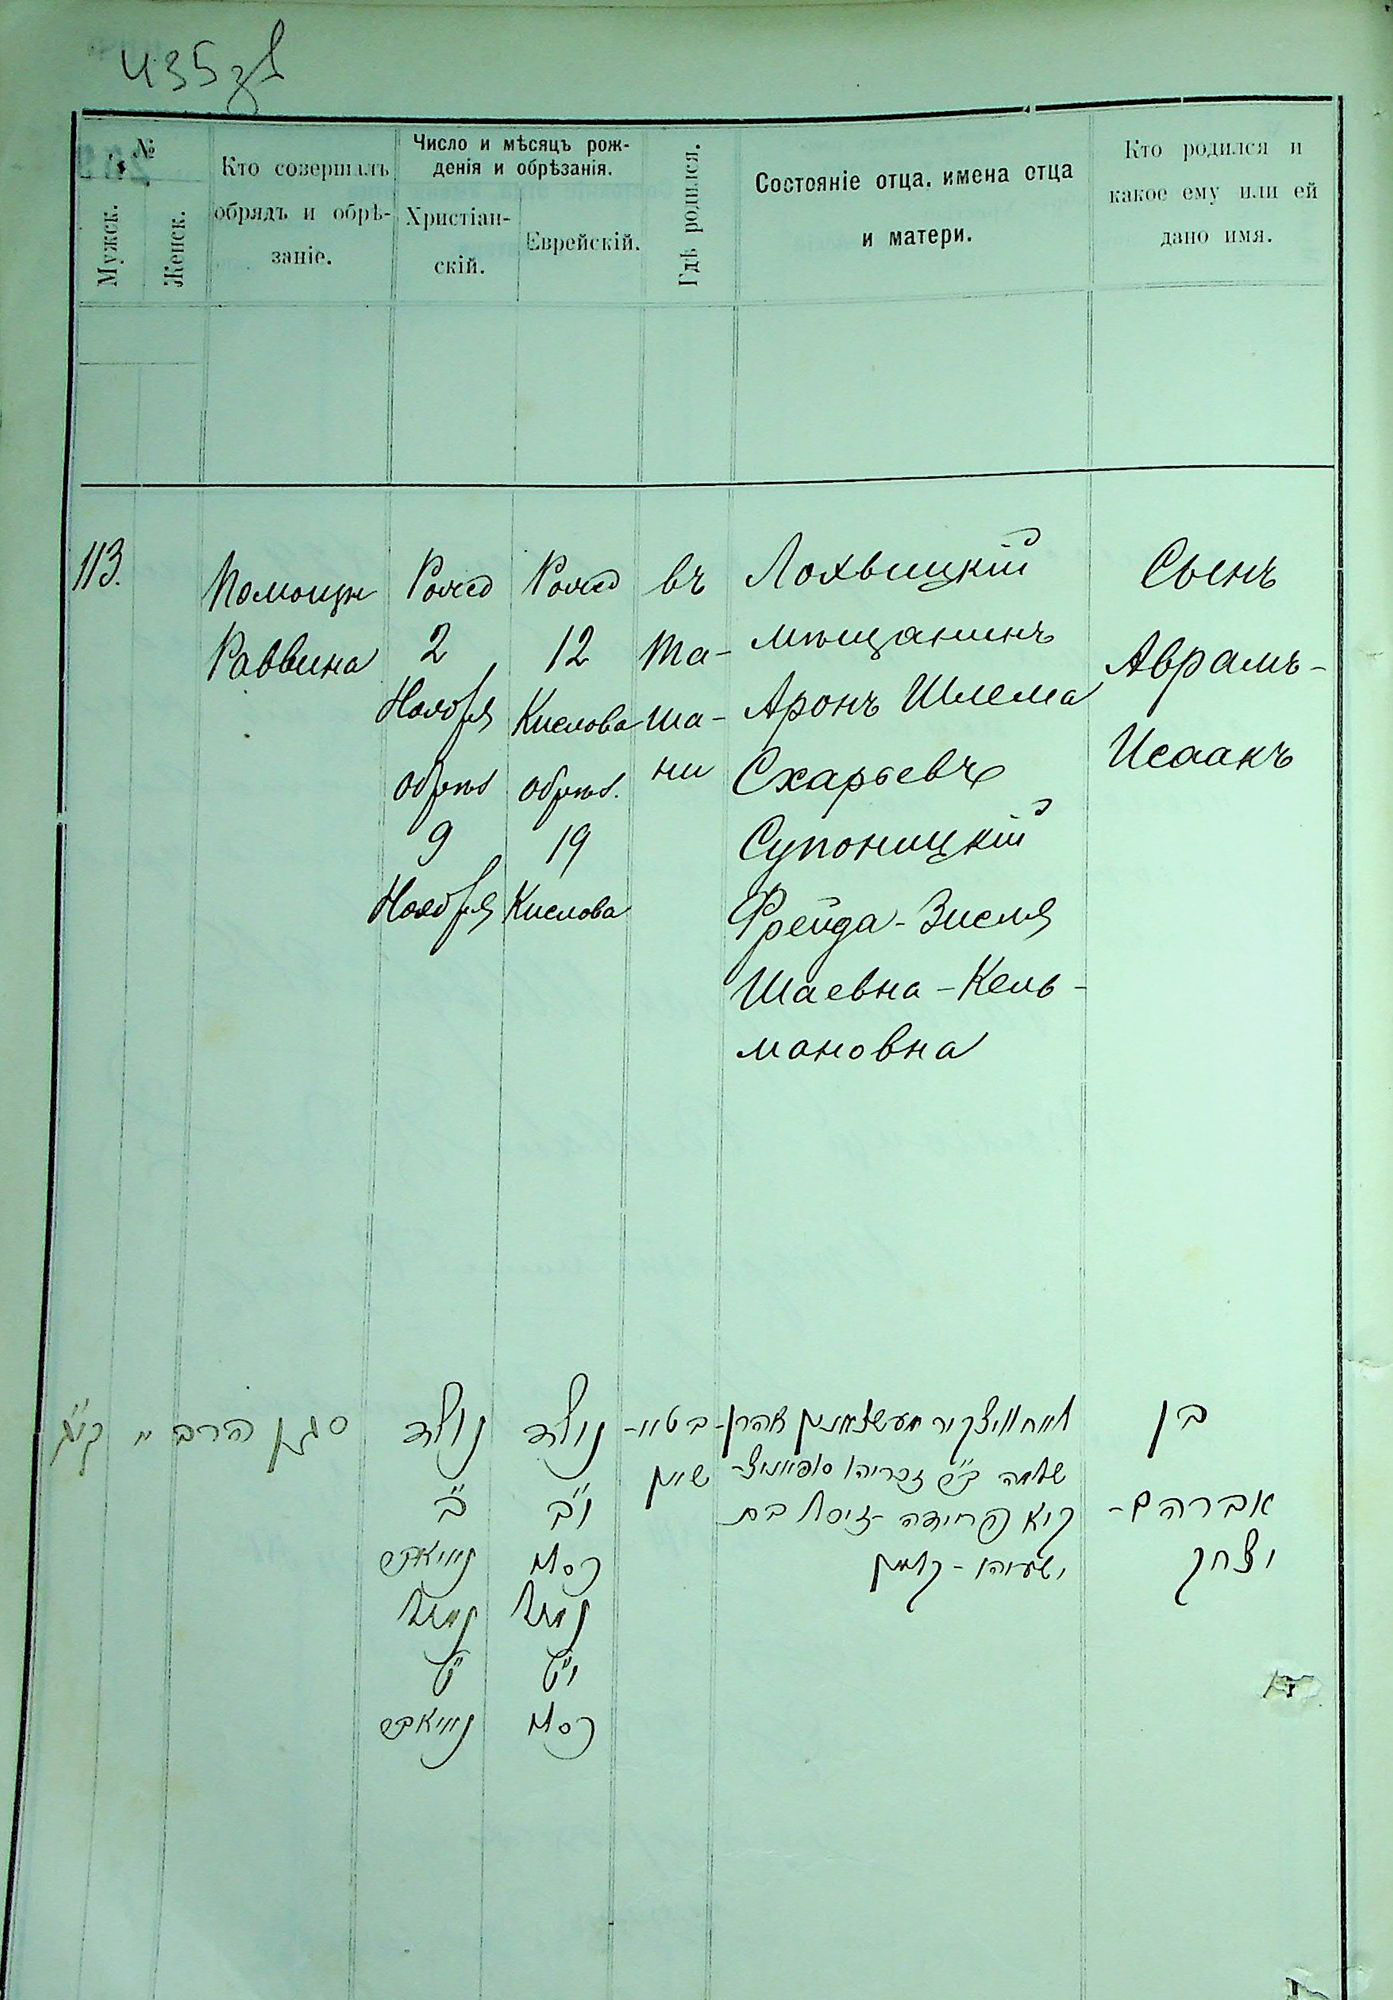 435зв
№
Мужск.
Женск.
Кто совершалъ
обрядъ и обрѣ-
заніе.
Число и мѣсяцъ рож-
денія и обрѣзанія.
Христіан-
скій.
Еврейскій.
Гдѣ родился.
Состояніе отца, имена отца
и матери.
Кто родился и
какое ему или ей
дано имя.
113.
Помощн
Раввина
Рожд
2
Ноября
обрѣз
9
Ноября
Рожд
12
Кислова
обрѣз.
19
Кислова
въ
Та-
ша-
ни
Лохвицкій
мѣщанинъ
Аронъ Шлема
Схарьевъ
Супоницкій
Фрейда-Зисля
Шаевна-Кель-
мановна
Сынъ
Аврамъ-
Исаакъ
קי"ג
סגן הרב
נולד
ב'
נאוויאבר
נמול
ט'
נאוויאבר
נולד
י"ב
כסלו
נמול
י"ט
כסלו
אהרן
שלמה ב"ר זכריהו
פריידה-זיסל בת
ישעיהו-קלמן
בן
אברהם-
יצחק